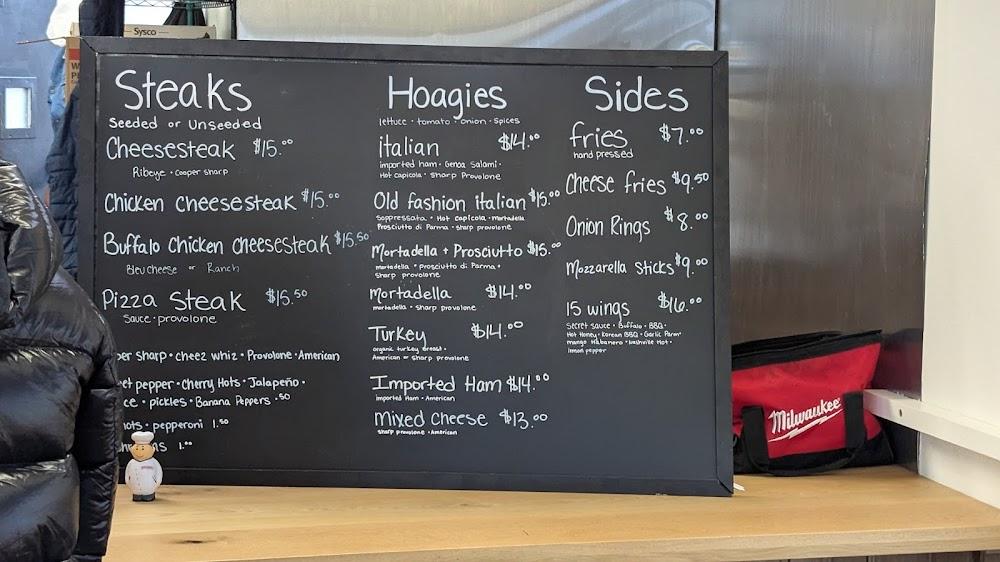 Sysco
Steaks
Seeded or Unseeded
Cheesesteak $15.00
Ribeye • Cooper sharp
Chicken Cheesesteak $15.00
Buffalo Chicken Cheesesteak $15.50
Bleu cheese or Ranch
Pizza Steak $15.50
Sauce • provolone
sharp • cheez whiz • Provolone • American
pepper • Cherry Hots • Jalapeño •
• pickles • Banana Peppers .50
• pepperoni 1.50
1.00
Hoagies
lettuce • tomato • onion • spices
italian $14.00
imported ham • Genoa Salami •
Hot capicola • Sharp Provolone
Old fashion Italian $15.00
Soppressata • Hot capicola • mortadella
Prosciutto di Parma • sharp provolone
Mortadella + Prosciutto $15.00
mortadella • prosciutto di Parma •
sharp provolone
Mortadella $14.00
mortadella • sharp provolone
Turkey $14.00
organic turkey breast •
American or sharp provolone
Imported Ham $14.00
imported Ham • American
Mixed Cheese $13.00
sharp provolone • American
Sides
fries $7.00
hand pressed
Cheese fries $9.50
Onion Rings $8.00
Mozzarella sticks $9.00
15 wings $16.00
Secret sauce • Buffalo • BBQ •
Hot Honey • Korean BBQ • Garlic Parm •
mango Habanero • Nashville Hot •
lemon pepper
Milwaukee